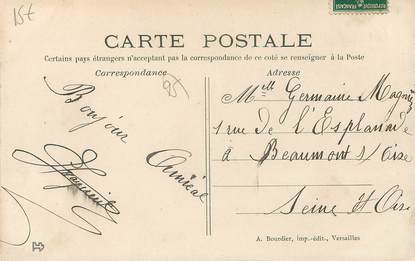 15€
CARTE POSTALE
Certains pays étrangers n'acceptant pas la correspondance de ce coté se renseigner à la Poste
Correspondance
Adresse
95
Bonjour
Amical
Mlle Germaine
1 rue de l'Esplanade
à Beaumont s/ Oise
Seine et Oise
A. Bourdier, imp.-édit., Versailles